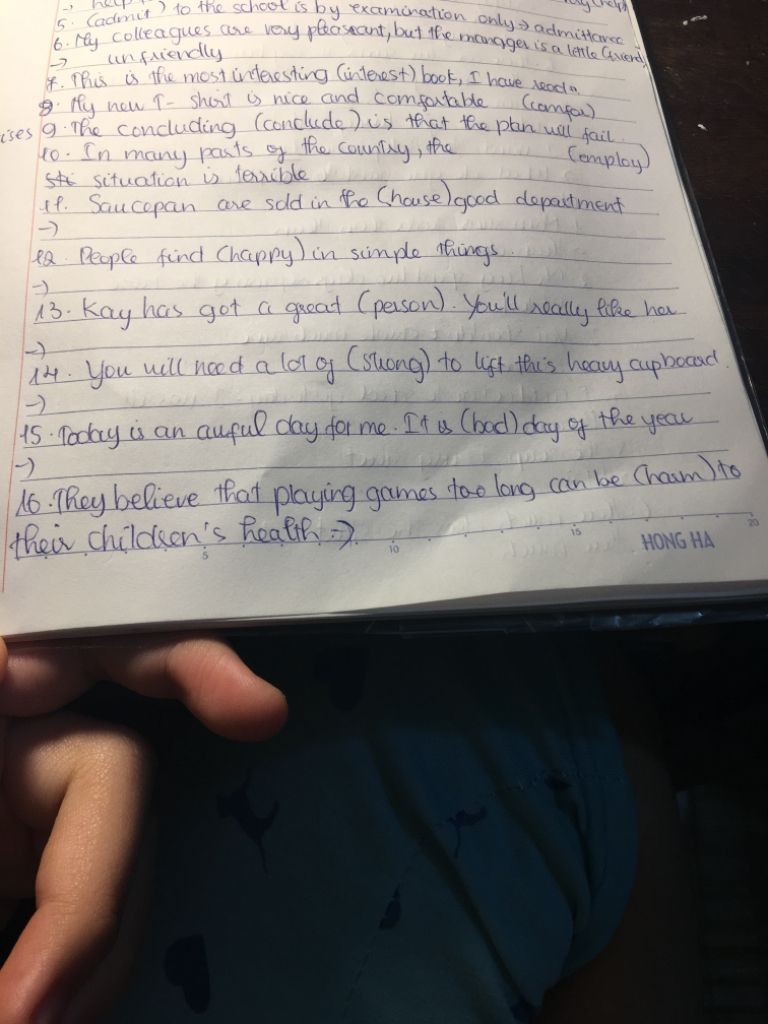 5. (admit) to the school is by examination only → admittance
6. My colleagues are very pleasant, but the manager is a little (friend)
→ unfriendly
7. This is the most interesting (interest) book, I have read.
8. My new T-shirt is nice and comfortable (comfor)
ises 9. The concluding (conclude) is that the plan will fail
10. In many parts of the country, the (employ)
situation is terrible
11. Saucepan are sold in the (house) good department
→)
12. People find (happy) in simple things.
→)
13. Kay has got a great (person). You'll really like her
→)
14. You will need a lot of (strong) to lift this heavy cupboard.
→)
15. Today is an awful day for me. It is (bad) day of the year
→)
16. They believe that playing games too long can be (harm) to
their children's health →
5 10 15 20
HONG HA